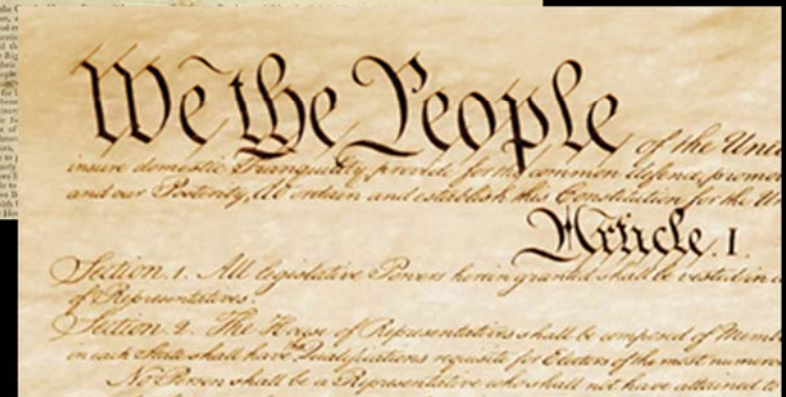 We the People of the Uni
insure domestic Tranquility, provide for the common defence, promo
and our Posterity, do ordain and establish this Constitution for the Un
Article. I.
Section. 1. All legislative Powers herein granted shall be vested in a
of Representatives.
Section. 2. The House of Representatives shall be composed of Memb
in each State shall have the Qualifications requisite for Electors of the most numero
No Person shall be a Representative who shall not have attained to